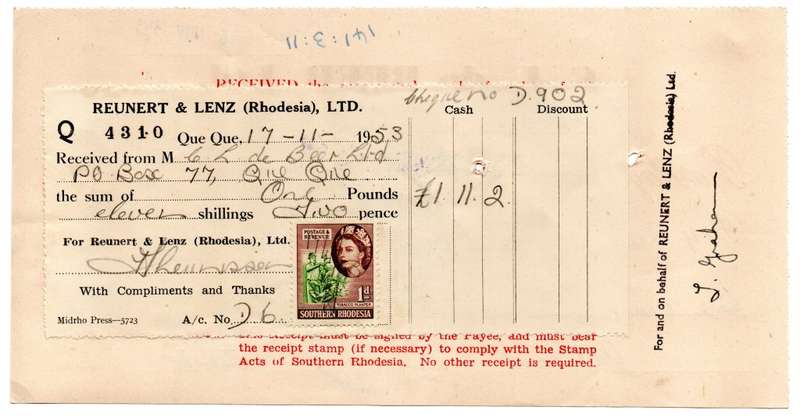 141:3:11
RECEIVED the
cheque no D.902
REUNERT & LENZ (Rhodesia), LTD.
Cash Discount
Q 4310 Que Que, 17-11-1953
Received from M C L de Beer Ltd
PO Box 77, Que Que
the sum of One Pounds
£1. 11. 2.
eleven shillings Two pence
For Reunert & Lenz (Rhodesia), Ltd.
With Compliments and Thanks
Midrho Press—5723 A/c. No. D6
POSTAGE & REVENUE
1d
TOBACCO PLANTER
SOUTHERN RHODESIA
Receipt must be signed by the Payee, and must bear
the receipt stamp (if necessary) to comply with the Stamp
Acts of Southern Rhodesia. No other receipt is required.
For and on behalf of REUNERT & LENZ (Rhodesia) Ltd.
Graham